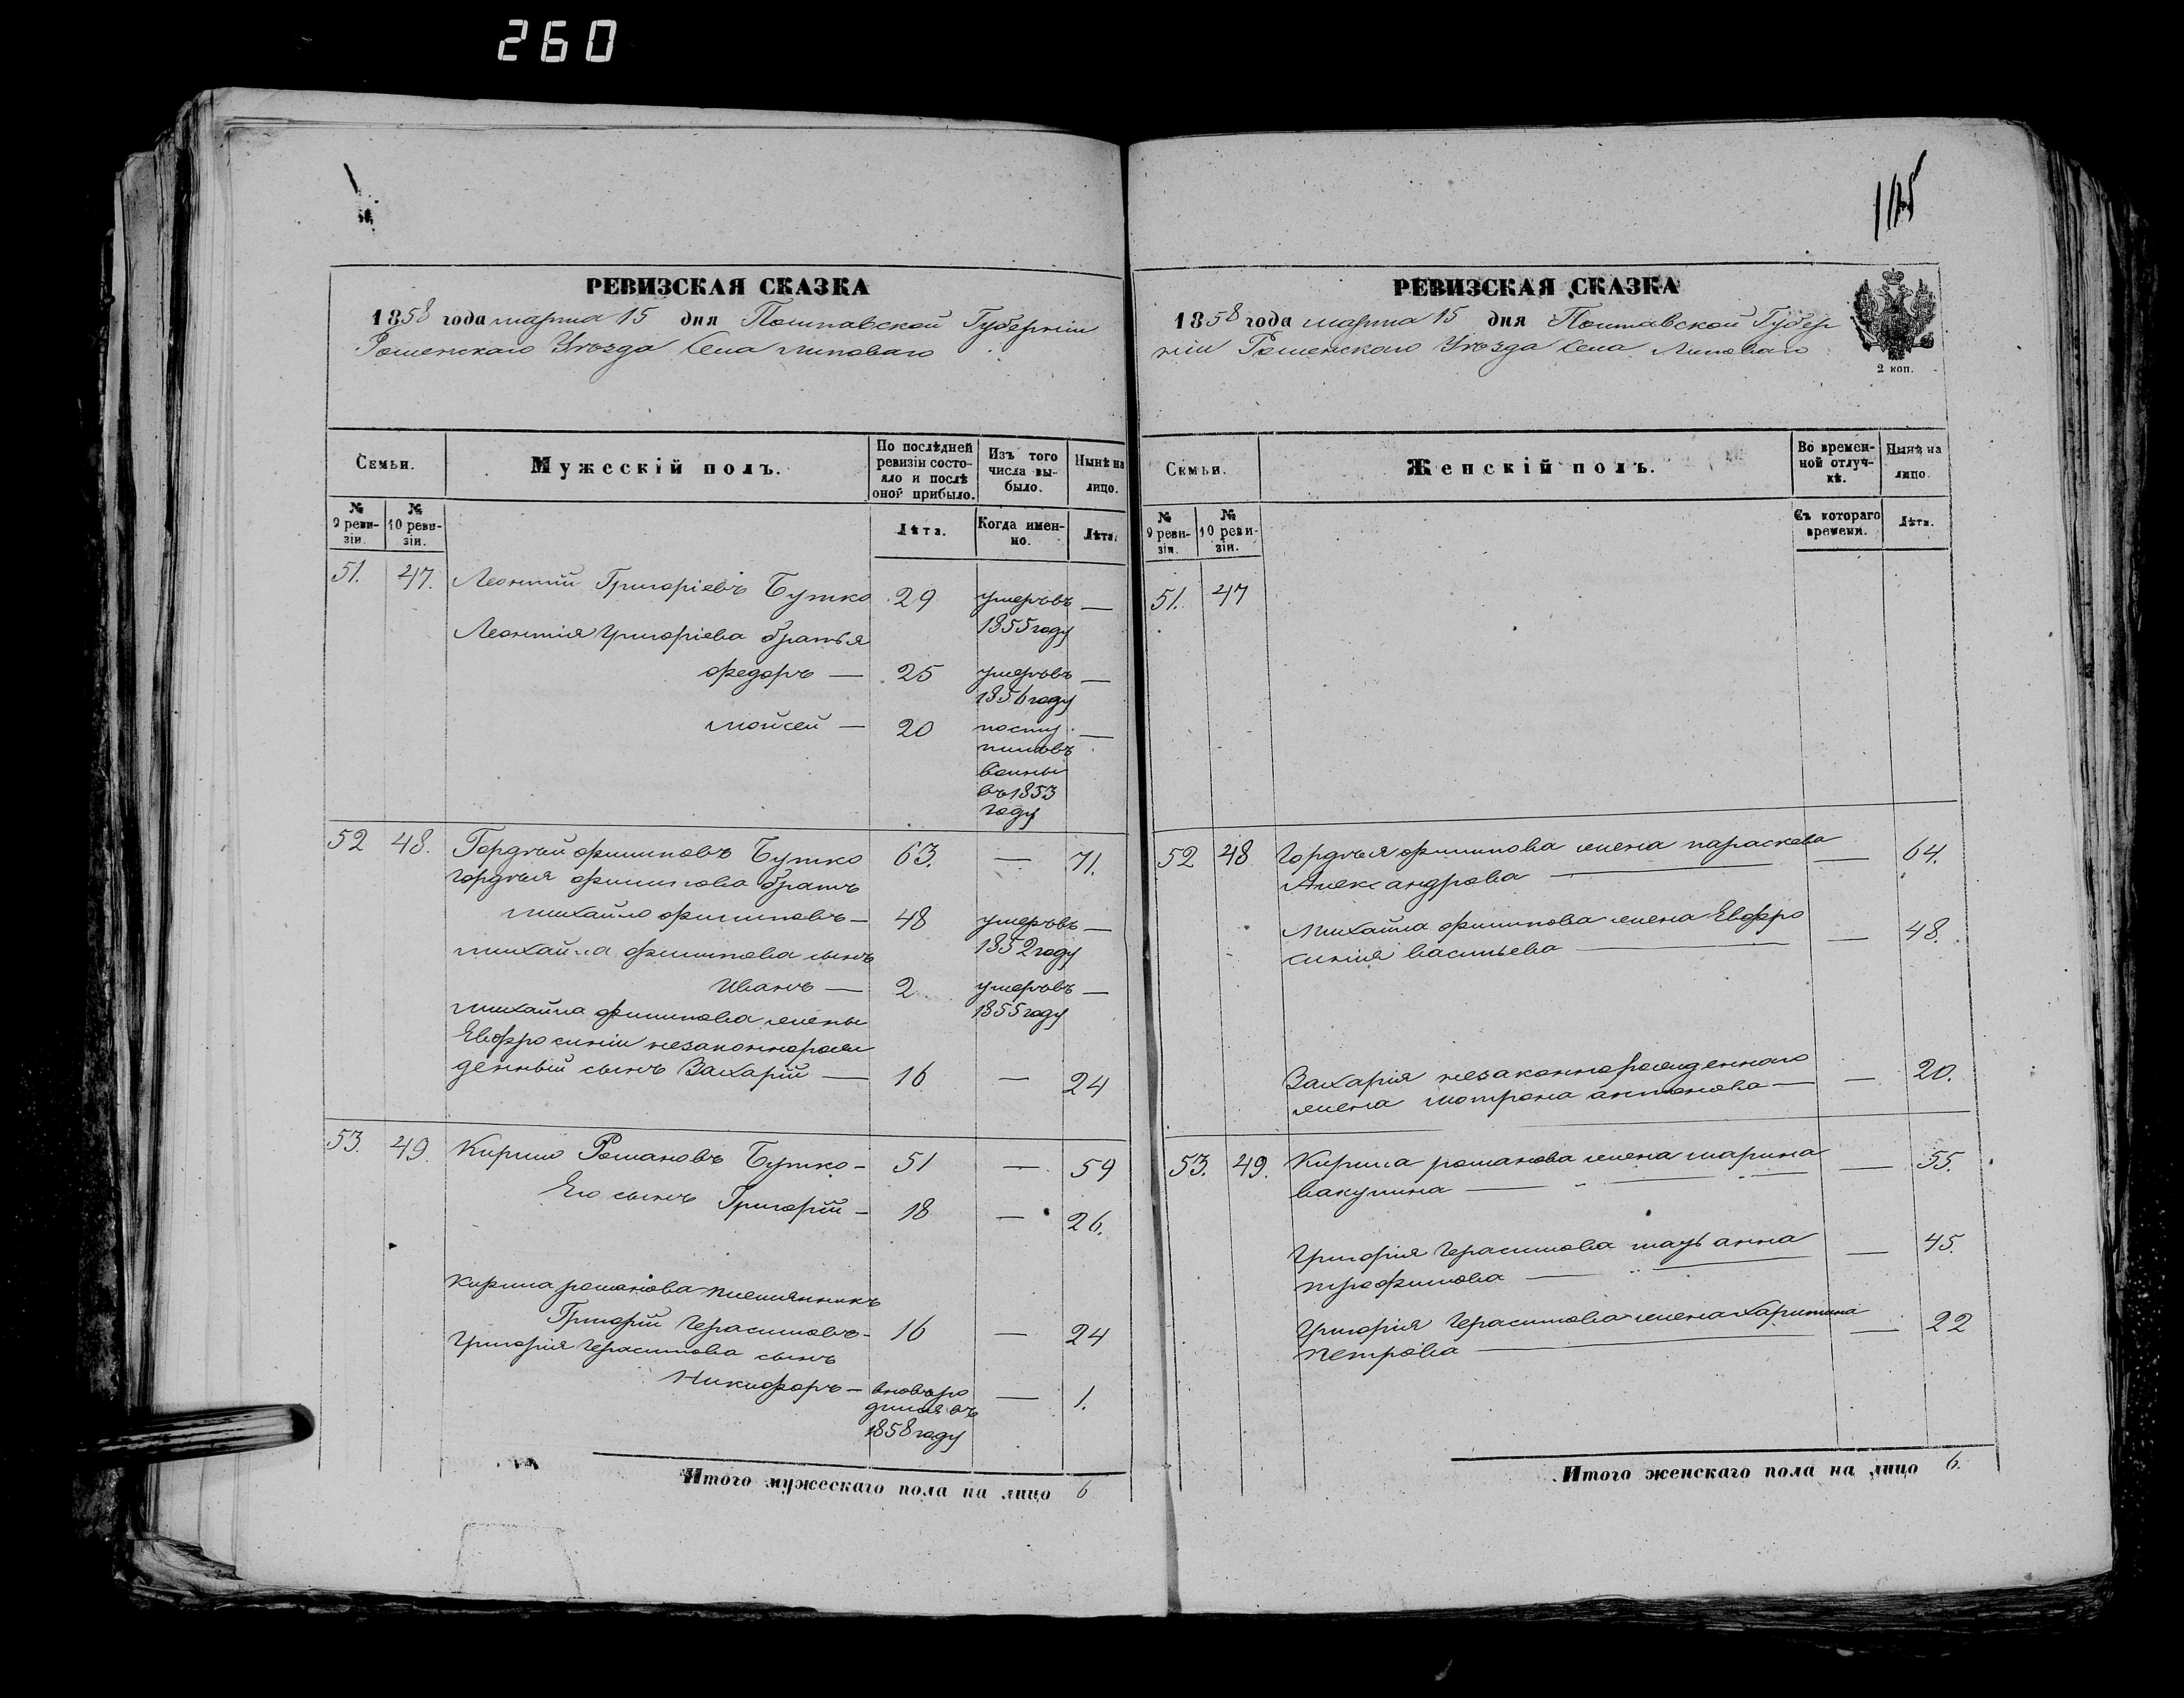 260
115
РЕВИЗСКАЯ СКАЗКА
1858 года марта 15 дня Полтавской Губерніи
Роменскаго Уѣзда Села Липоваго
Семьи.
Мужескій полъ.
По послѣдней ревизіи состояло и послѣ оной прибыло.
Изъ того числа выбыло.
Нынѣ на лицо.
№ 9 ревизіи.
№ 10 ревизіи.
Лѣта.
Когда именно.
Лѣта.
51. 47. Леонтій Григоріевъ Бутко 29 умеръ въ —
1855 году
Леонтія Григоріева братья
Федоръ — 25 умеръ въ —
1856 году
Мойсей — 20 посту —
въ 1853
году
52 48. Гордѣй Филиповъ Бутко 63. — 71.
Гордѣя Филипова братъ
Михайло Филиповъ — 48 умеръ въ —
1852 году
Михайла Филипова сынъ
Иванъ — 2 умеръ въ —
1855 году
Михайла Филипова жены
Евфросиніи незаконнорож
денный сынъ Захарій — 16 — 24
53. 49. Кирило Романовъ Бутко — 51 — 59
Его сынъ Григорій — 18 — 26.
Кирила Романова племянникъ
Григорій Герасимовъ — 16 — 24
Григорія Герасимова сынъ
Никифоръ — вновь ро — 1.
дился въ
1858 году
Итого мужескаго пола на лицо 6
РЕВИЗСКАЯ СКАЗКА
1858 года марта 15 дня Полтавской Губер
ніи Роменскаго Уѣзда Села Липоваго
2 коп.
Семьи.
Женскій полъ.
Во временной отлучкѣ.
Нынѣ на лицо.
№ 9 ревизіи.
№ 10 ревизіи.
Съ котораго времени.
Лѣта.
51. 47
52 48 Гордѣя Филипова жена Параскева — 64.
Александрова —
Михайла Филипова жена Евфро — 48.
синія Васильева —
Захарія незаконнорожденнаго — 20.
жена Мотрона Антонова —
53. 49. Кирила Романова жена Марина — 55.
Вакулина —
Григорія Герасимова мать Анна — 45.
Трофимова —
Григорія Герасимова жена Харитина — 22
Петрова —
Итого женскаго пола на лицо 6.